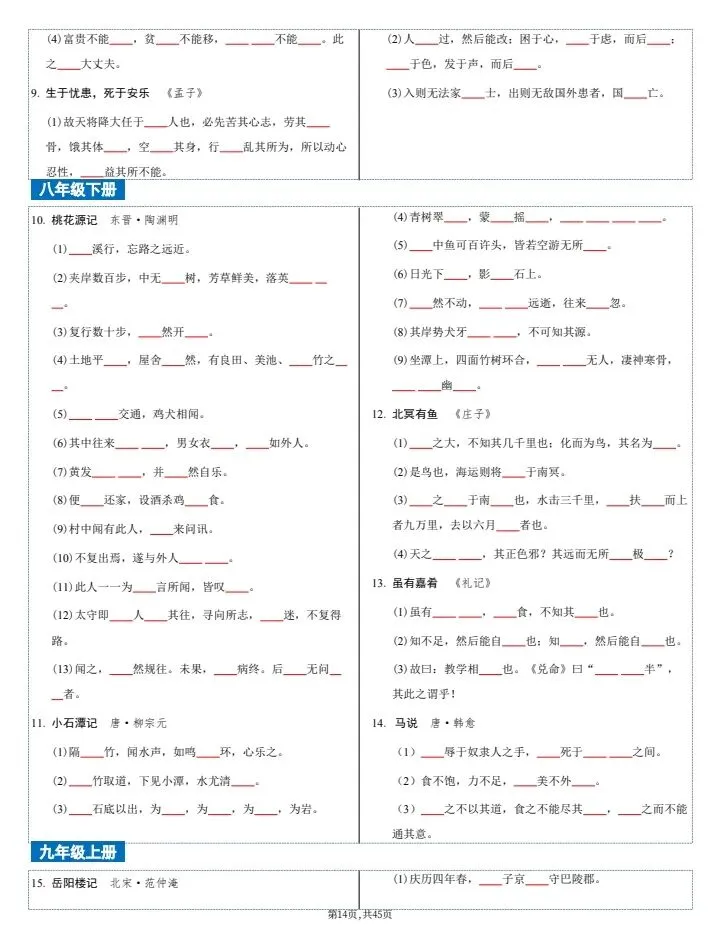 (4)富贵不能____，贫____不能移，____ ____不能____。此
之____大丈夫。
9. 生于忧患，死于安乐 《孟子》
(1)故天将降大任于____人也，必先苦其心志，劳其____
骨，饿其体____，空____其身，行____乱其所为，所以动心
忍性，____益其所不能。
(2)人____过，然后能改；困于心，____于虑，而后____；
____于色，发于声，而后____。
(3)入则无法家____士，出则无敌国外患者，国____亡。
八年级下册
10. 桃花源记 东晋·陶渊明
(1)____溪行，忘路之远近。
(2)夹岸数百步，中无____树，芳草鲜美，落英____ __
__。
(3)复行数十步，____然开____。
(4)土地平____，屋舍____然，有良田、美池、____竹之__
__。
(5)____ ____交通，鸡犬相闻。
(6)其中往来____ ____，男女衣____，____如外人。
(7)黄发____ ____，并____然自乐。
(8)便____还家，设酒杀鸡____食。
(9)村中闻有此人，____来问讯。
(10)不复出焉，遂与外人____ ____。
(11)此人一一为____言所闻，皆叹____。
(12)太守即____人____其往，寻向所志，____迷，不复得
路。
(13)闻之，____然规往。未果，____病终。后____无问__
__者。
11. 小石潭记 唐·柳宗元
(1)隔____竹，闻水声，如鸣____环，心乐之。
(2)____竹取道，下见小潭，水尤清____。
(3)____石底以出，为____，为____，为____，为岩。
(4)青树翠____，蒙____摇____，____ ____ ____ ____。
(5)____中鱼可百许头，皆若空游无所____。
(6)日光下____，影____石上。
(7)____然不动，____ ____远逝，往来____忽。
(8)其岸势犬牙____ ____，不可知其源。
(9)坐潭上，四面竹树环合，____ ____无人，凄神寒骨，
____ ____幽____。
12. 北冥有鱼 《庄子》
(1)____之大，不知其几千里也；化而为鸟，其名为____。
(2)是鸟也，海运则将____于南冥。
(3)____之____于南____也，水击三千里，____扶____而上
者九万里，去以六月____者也。
(4)天之____ ____，其正色邪？其远而无所____极____？
13. 虽有嘉肴 《礼记》
(1)虽有____ ____，____食，不知其____也。
(2)知不足，然后能自____也；知____，然后能自____也。
(3)故曰：教学相____也。《兑命》曰“____ ____半”，
其此之谓乎！
14. 马说 唐·韩愈
（1）____辱于奴隶人之手，____死于____ ____之间。
（2）食不饱，力不足，____美不外____。
（3）____之不以其道，食之不能尽其____，____之而不能
通其意。
九年级上册
15. 岳阳楼记 北宋·范仲淹
(1)庆历四年春，____子京____守巴陵郡。
第14页,共45页